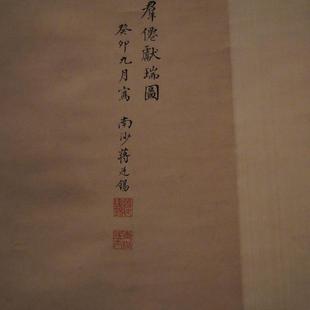 羣僊獻瑞圖
癸卯九月寫 南沙蔣廷錫